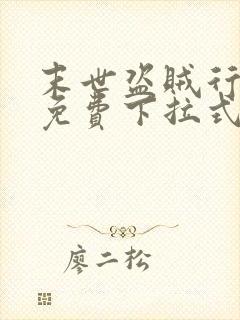 末世盗贼行
免费下拉式
廖二松